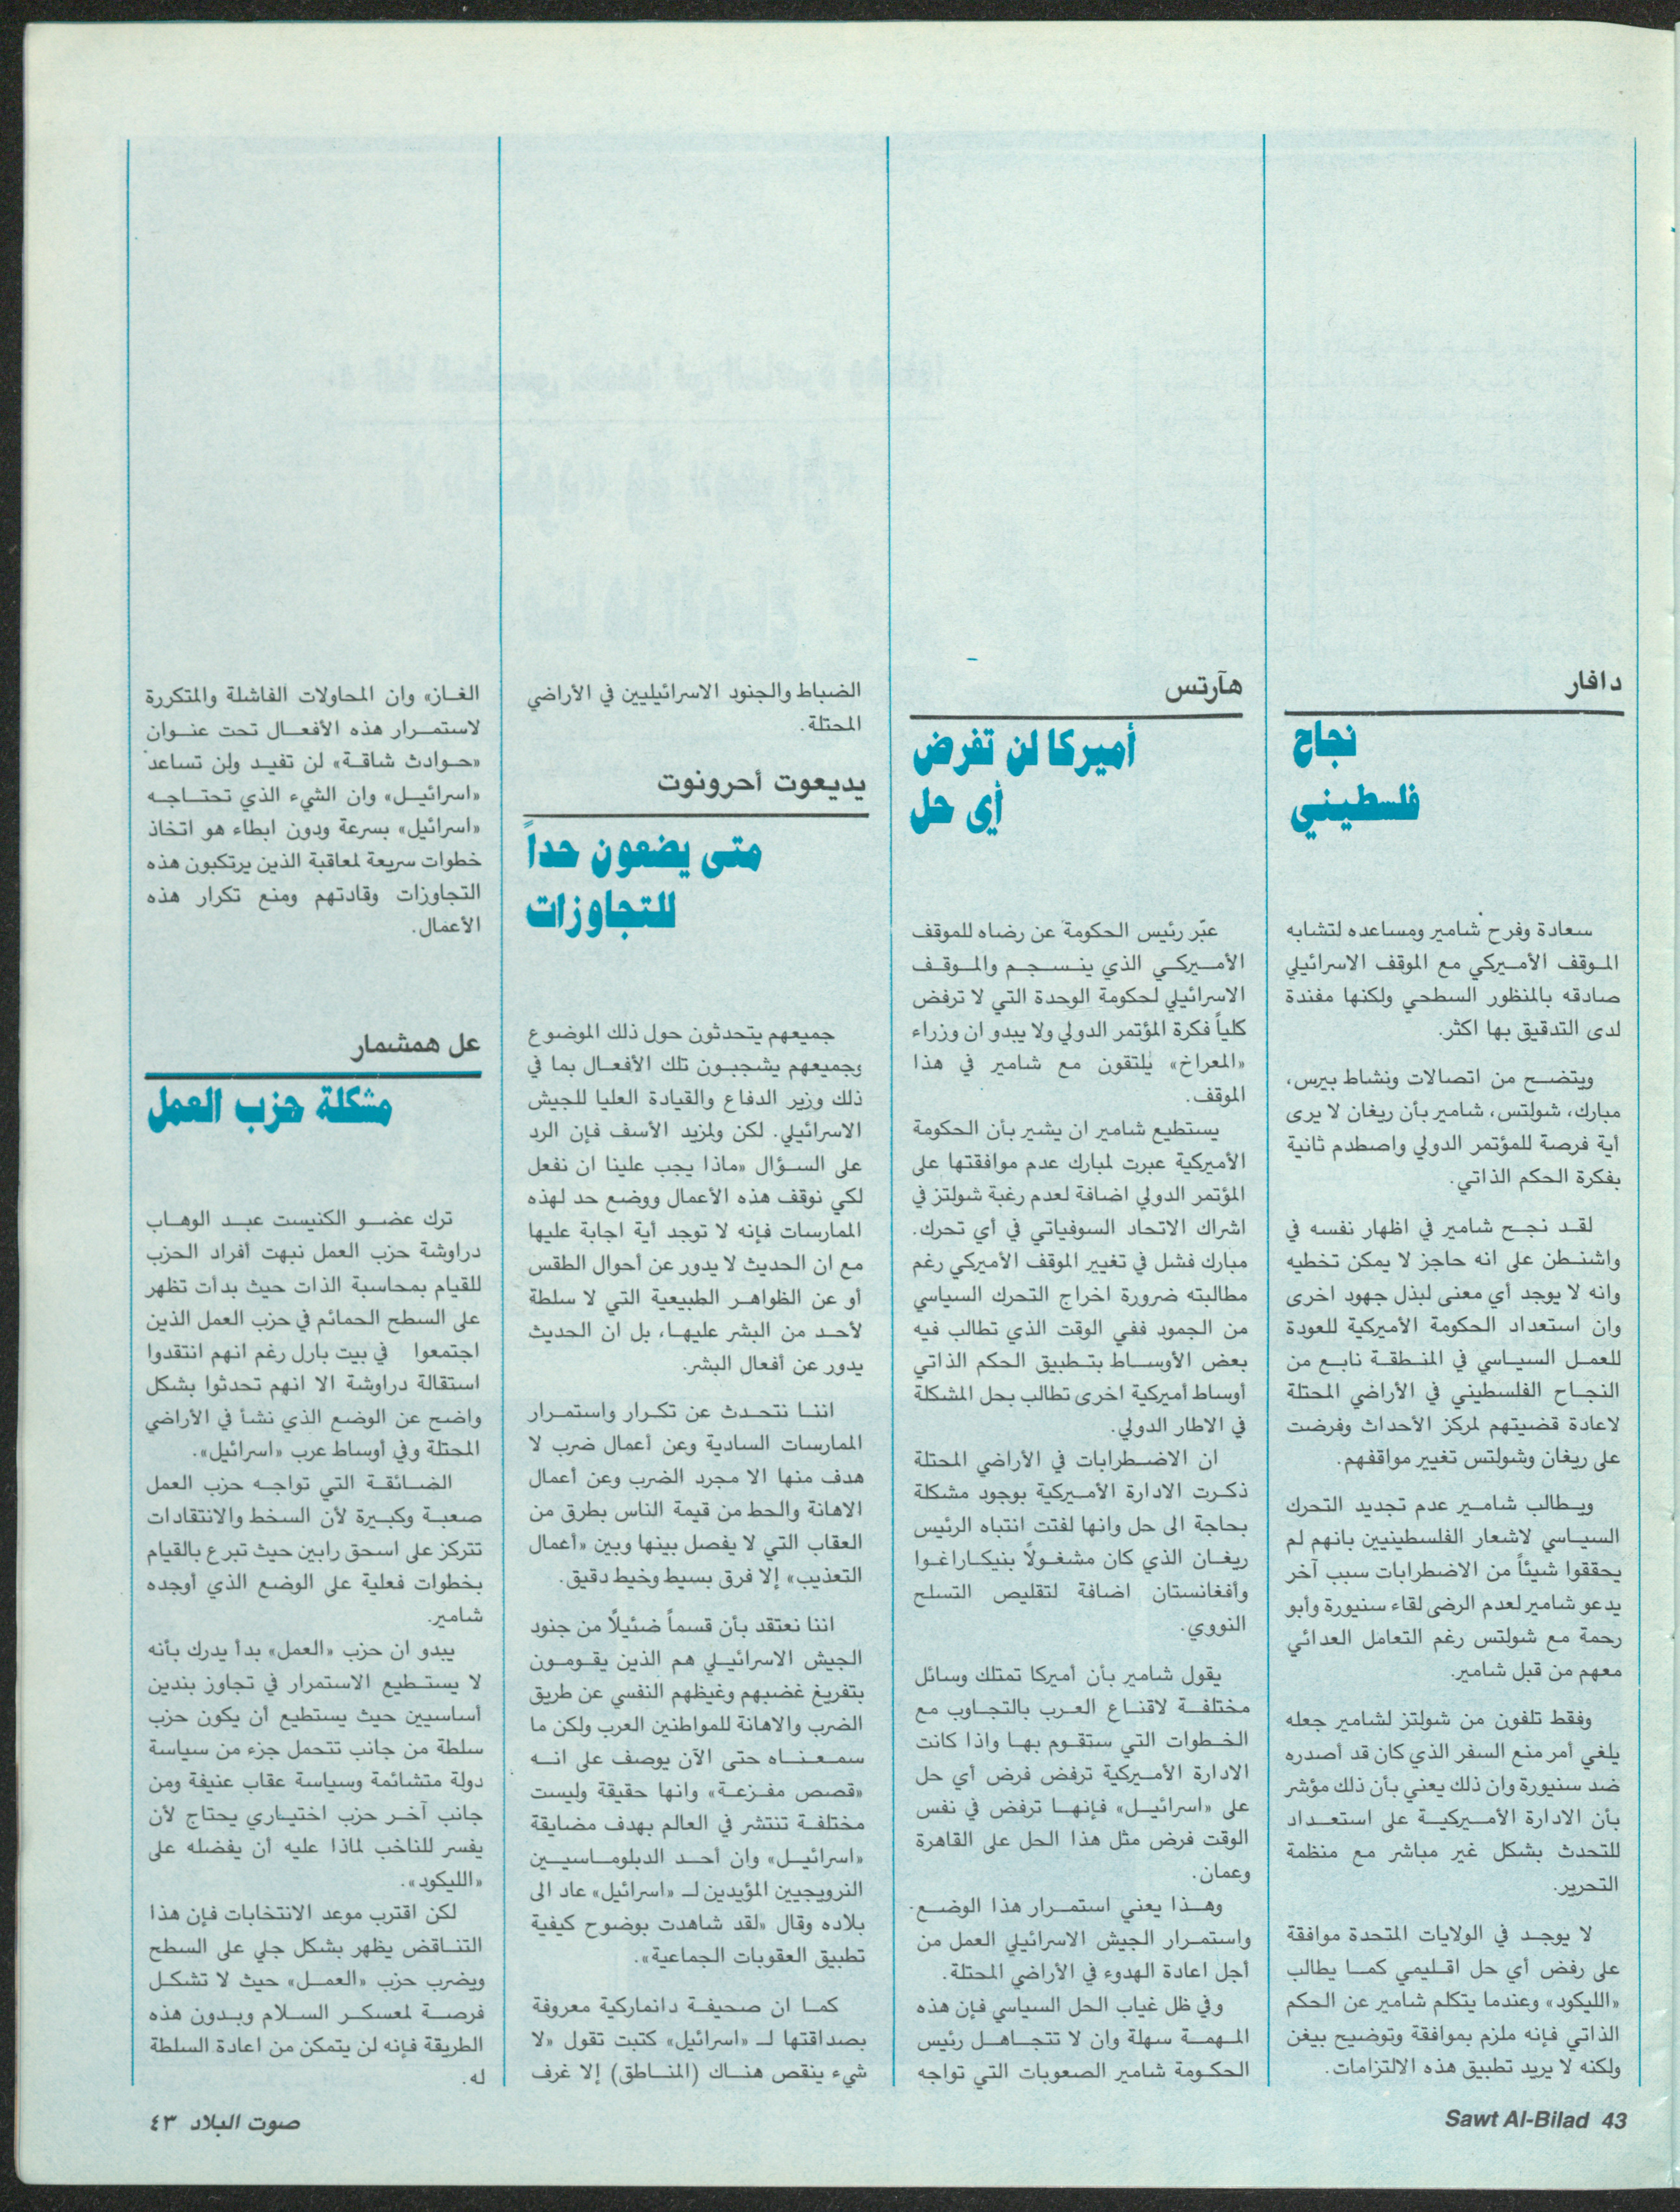 دافار
نجاح
فلسطيني
سعادة وفرح شامير ومساعده لتشابه
الموقف الأميركي مع الموقف الاسرائيلي
صادقه بالمنظور السطحي ولكنها مفندة
لدى التدقيق بها اكثر.
ويتضح من اتصالات ونشاط بيرس،
مبارك، شولتس، شامير بأن ريغان لا يرى
أية فرصة للمؤتمر الدولي واصطدم ثانية
بفكرة الحكم الذاتي.
لقد نجح شامير في اظهار نفسه في
واشنطن على انه حاجز لا يمكن تخطيه
وانه لا يوجد أي معنى لبذل جهود اخرى
وان استعداد الحكومة الأميركية للعودة
للعمل السياسي في المنطقة نابع من
النجاح الفلسطيني في الأراضي المحتلة
لاعادة قضيتهم لمركز الأحداث وفرضت
على ريغان وشولتس تغيير مواقفهم.
ويطالب شامير عدم تجديد التحرك
السياسي لاشعار الفلسطينيين بانهم لم
يحققوا شيئاً من الاضطرابات سبب آخر
يدعو شامير لعدم الرضى لقاء سنيورة وأبو
رحمة مع شولتس رغم التعامل العدائي
معهم من قبل شامير.
وفقط تلفون من شولتز لشامير جعله
يلغي أمر منع السفر الذي كان قد أصدره
ضد سنيورة وان ذلك يعني بأن ذلك مؤشر
بأن الادارة الأميركية على استعداد
للتحدث بشكل غير مباشر مع منظمة
التحرير.
لا يوجد في الولايات المتحدة موافقة
على رفض أي حل اقليمي كما يطالب
«الليكود» وعندما يتكلم شامير عن الحكم
الذاتي فإنه ملزم بموافقة وتوضيح بيغن
ولكنه لا يريد تطبيق هذه الالتزامات.
هآرتس
أميركا لن تفرض
أي حل
عبّر رئيس الحكومة عن رضاه للموقف
الأميركي الذي ينسجم والموقف
الاسرائيلي لحكومة الوحدة التي لا ترفض
كلياً فكرة المؤتمر الدولي ولا يبدو ان وزراء
«المعراخ» يلتقون مع شامير في هذا
الموقف.
يستطيع شامير ان يشير بأن الحكومة
الأميركية عبرت لمبارك عدم موافقتها على
المؤتمر الدولي اضافة لعدم رغبة شولتز في
اشراك الاتحاد السوفياتي في أي تحرك.
مبارك فشل في تغيير الموقف الأميركي رغم
مطالبته ضرورة اخراج التحرك السياسي
من الجمود ففي الوقت الذي تطالب فيه
بعض الأوساط بتطبيق الحكم الذاتي
أوساط أميركية اخرى تطالب بحل المشكلة
في الاطار الدولي.
ان الاضطرابات في الأراضي المحتلة
ذكرت الادارة الأميركية بوجود مشكلة
بحاجة الى حل وانها لفتت انتباه الرئيس
ريغان الذي كان مشغولاً بنيكاراغوا
وأفغانستان اضافة لتقليص التسلح
النووي.
يقول شامير بأن أميركا تمتلك وسائل
مختلفة لاقناع العرب بالتجاوب مع
الخطوات التي ستقوم بها واذا كانت
الادارة الأميركية ترفض فرض أي حل
على «اسرائيل» فإنها ترفض في نفس
الوقت فرض مثل هذا الحل على القاهرة
وعمان.
وهذا يعني استمرار هذا الوضع.
واستمرار الجيش الاسرائيلي العمل من
أجل اعادة الهدوء في الأراضي المحتلة.
وفي ظل غياب الحل السياسي فإن هذه
المهمة سهلة وان لا تتجاهل رئيس
الحكومة شامير الصعوبات التي تواجه
الضباط والجنود الاسرائيليين في الأراضي
المحتلة.
يديعوت أحرونوت
متى يضعون حداً
للتجاوزات
جميعهم يتحدثون حول ذلك الموضوع
وجميعهم يشجبون تلك الأفعال بما في
ذلك وزير الدفاع والقيادة العليا للجيش
الاسرائيلي. لكن ولمزيد الأسف فإن الرد
على السؤال «ماذا يجب علينا ان نفعل
لكي نوقف هذه الأعمال ووضع حد لهذه
الممارسات فإنه لا توجد أية اجابة عليها
مع ان الحديث لا يدور عن أحوال الطقس
أو عن الظواهر الطبيعية التي لا سلطة
لأحد من البشر عليها، بل ان الحديث
يدور عن أفعال البشر.
اننا نتحدث عن تكرار واستمرار
الممارسات السادية وعن أعمال ضرب لا
هدف منها الا مجرد الضرب وعن أعمال
الاهانة والحط من قيمة الناس بطرق من
العقاب التي لا يفصل بينها وبين «أعمال
التعذيب» إلا فرق بسيط وخيط دقيق.
اننا نعتقد بأن قسماً ضئيلاً من جنود
الجيش الاسرائيلي هم الذين يقومون
بتفريغ غضبهم وغيظهم النفسي عن طريق
الضرب والاهانة للمواطنين العرب ولكن ما
سمعناه حتى الآن يوصف على انه
«قصص مفزعة» وانها حقيقة وليست
مختلفة تنتشر في العالم بهدف مضايقة
«اسرائيل» وان أحد الدبلوماسيين
النرويجيين المؤيدين لـ «اسرائيل» عاد الى
بلاده وقال «لقد شاهدت بوضوح كيفية
تطبيق العقوبات الجماعية».
كما ان صحيفة دانماركية معروفة
بصداقتها لـ «اسرائيل» كتبت تقول «لا
شيء ينقص هناك (المناطق) إلا غرف
الغاز» وان المحاولات الفاشلة والمتكررة
لاستمرار هذه الأفعال تحت عنوان
«حوادث شاقة» لن تفيد ولن تساعد
«اسرائيل» وان الشيء الذي تحتاجه
«اسرائيل» بسرعة ودون ابطاء هو اتخاذ
خطوات سريعة لمعاقبة الذين يرتكبون هذه
التجاوزات وقادتهم ومنع تكرار هذه
الأعمال.
عل همشمار
مشكلة حزب العمل
ترك عضو الكنيست عبد الوهاب
دراوشة حزب العمل نبهت أفراد الحزب
للقيام بمحاسبة الذات حيث بدأت تظهر
على السطح الحمائم في حزب العمل الذين
اجتمعوا في بيت بارل رغم انهم انتقدوا
استقالة دراوشة الا انهم تحدثوا بشكل
واضح عن الوضع الذي نشأ في الأراضي
المحتلة وفي أوساط عرب «اسرائيل».
الضائقة التي تواجه حزب العمل
صعبة وكبيرة لأن السخط والانتقادات
تتركز على اسحق رابين حيث تبرع بالقيام
بخطوات فعلية على الوضع الذي أوجده
شامير.
يبدو ان حزب «العمل» بدأ يدرك بأنه
لا يستطيع الاستمرار في تجاوز بندين
أساسيين حيث يستطيع أن يكون حزب
سلطة من جانب تتحمل جزء من سياسة
دولة متشائمة وسياسة عقاب عنيفة ومن
جانب آخر حزب اختياري يحتاج لأن
يفسر للناخب لماذا عليه أن يفضله على
«الليكود».
لكن اقترب موعد الانتخابات فإن هذا
التناقض يظهر بشكل جلي على السطح
ويضرب حزب «العمل» حيث لا تشكل
فرصة لمعسكر السلام وبدون هذه
الطريقة فإنه لن يتمكن من اعادة السلطة
له.
Sawt Al-Bilad 43
صوت البلاد ٤٣